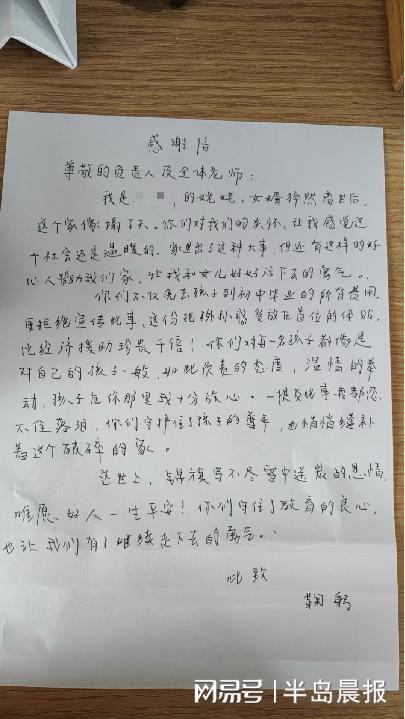 感谢信
尊敬的负责人及全体老师：
我是 ，的姥姥，女婿猝然离世后，
这个家像塌了天。你们对我们的关怀，让我感觉这
个社会还是温暖的。家里出了这种大事，但还有这样的好
心人帮助我们家，让我和女儿好好活下去的勇气。
你们不仅免去孩子到初中毕业的所有费用，
更拒绝宣传此事，这份把孩子感受放在首位的体贴，
比经济援助珍贵千倍！你们对每一名孩子都像是
对自己的孩子一般，如此负责的态度，温情的举
动，孩子在你那里我十分放心。一提及此事我都忍
不住落泪，你们守护住了孩子的尊严，也悄悄缝补
着这个破碎的家。
这世上，锦旗写不尽雪中送炭的恩情，
唯愿好人一生平安！你们守住了教育的良心，
也让我们有了继续走下去的勇气。
此致
鞠躬
网易号 | 半岛晨报